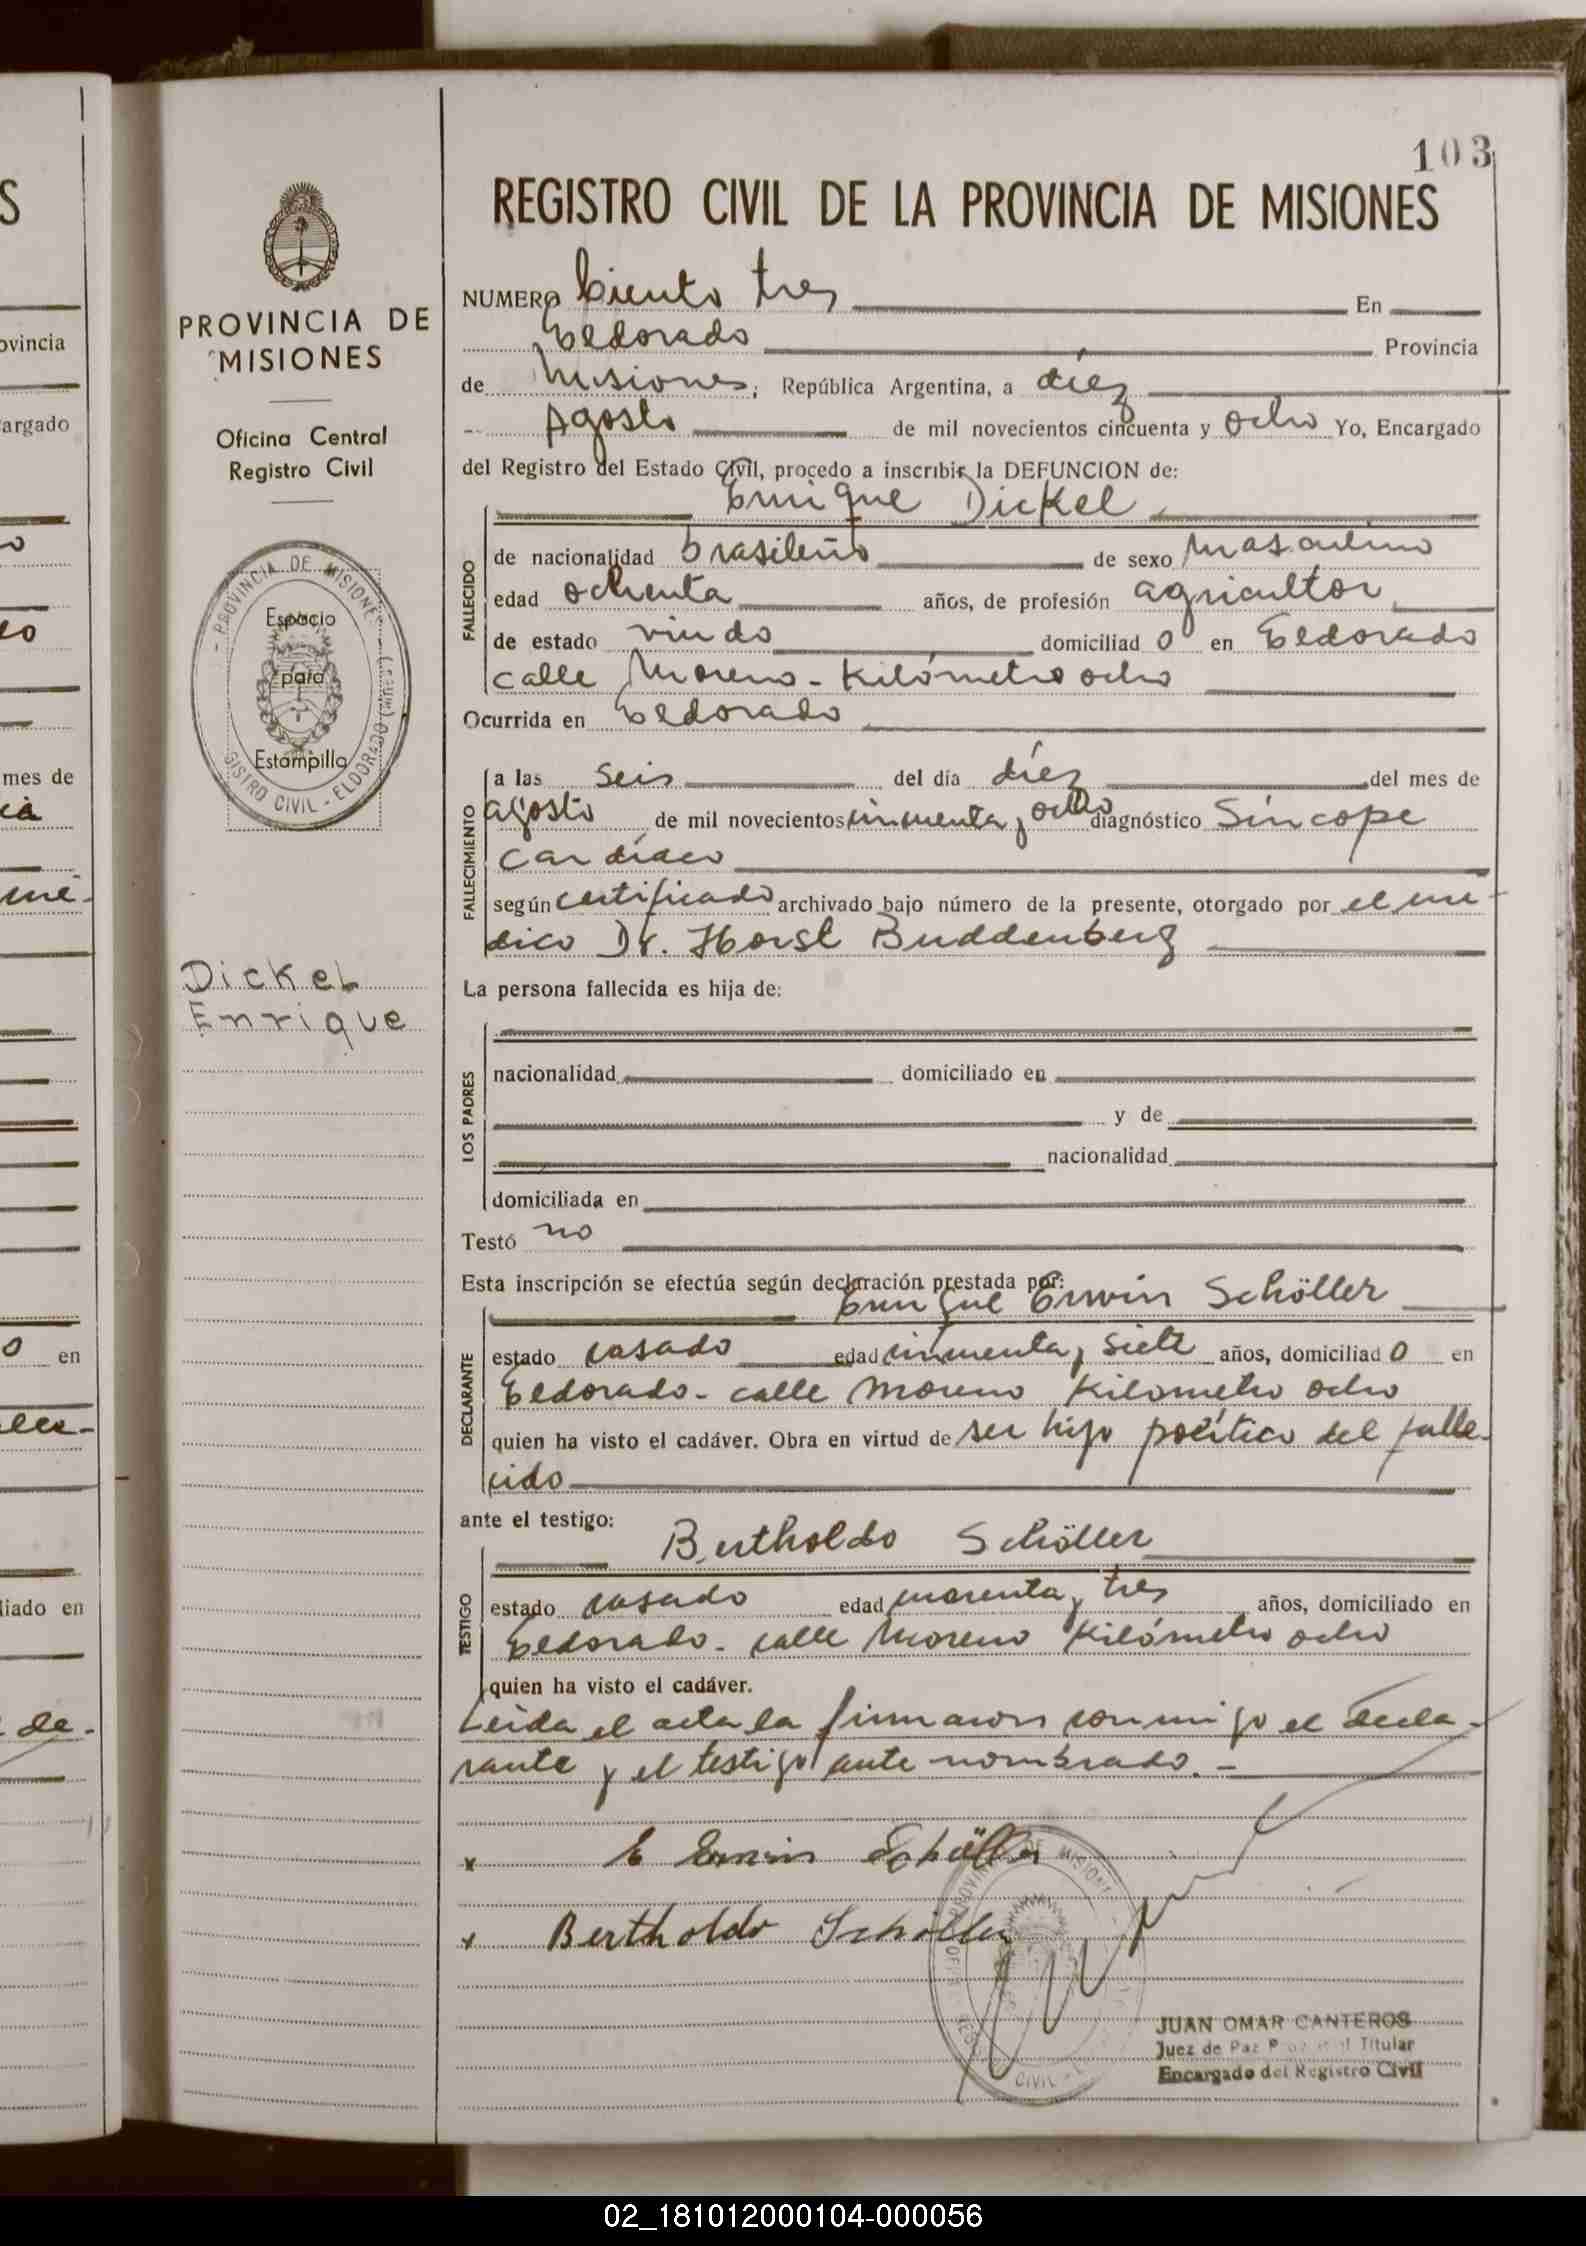 103
REGISTRO CIVIL DE LA PROVINCIA DE MISIONES
PROVINCIA DE
MISIONES
Oficina Central
Registro Civil
PROVINCIA DE MISIONES
Espacio
para
Estampilla
REGISTRO CIVIL - ELDORADO
Dickel
Enrique
NUMERO Ciento tres En
Eldorado Provincia
de Misiones, República Argentina, a diéz
Agosto de mil novecientos cincuenta y ocho Yo, Encargado
del Registro del Estado Civil, procedo a inscribir la DEFUNCION de:
Enrique Dickel
FALLECIDO
de nacionalidad brasileño de sexo masculino
edad ochenta años, de profesión agricultor
de estado viudo domiciliad o en Eldorado
calle Moreno - Kilómetro ocho
Ocurrida en Eldorado
FALLECIMIENTO
a las seis del día diéz del mes de
agosto de mil novecientos cincuenta y ocho diagnóstico Síncope
cardíaco
según certificado archivado bajo número de la presente, otorgado por el mé-
dico Dr. Horst Buddenberg
La persona fallecida es hija de:
LOS PADRES
nacionalidad domiciliado en
y de
nacionalidad
domiciliada en
Testó no
Esta inscripción se efectúa según declaración prestada por:
Enrique Erwin Schöller
DECLARANTE
estado casado edad cincuenta y siete años, domiciliad o en
Eldorado - calle Moreno Kilometro ocho
quien ha visto el cadáver. Obra en virtud de ser hijo político del falle-
cido
ante el testigo:
Bertholdo Schöller
TESTIGO
estado casado edad cuarenta y tres años, domiciliado en
Eldorado - calle Moreno Kilómetro ocho
quien ha visto el cadáver.
Leida el acta la firmaron conmigo el decla-
rante y el testigo ante nombrado. -
x E Erwin Schöller
x Bertholdo Schöller
JUAN OMAR CANTEROS
Juez de Paz Titular
Encargado del Registro Civil
S
ovincia
argado
mes de
mé-
o en
liado en
de-
02_181012000104-000056